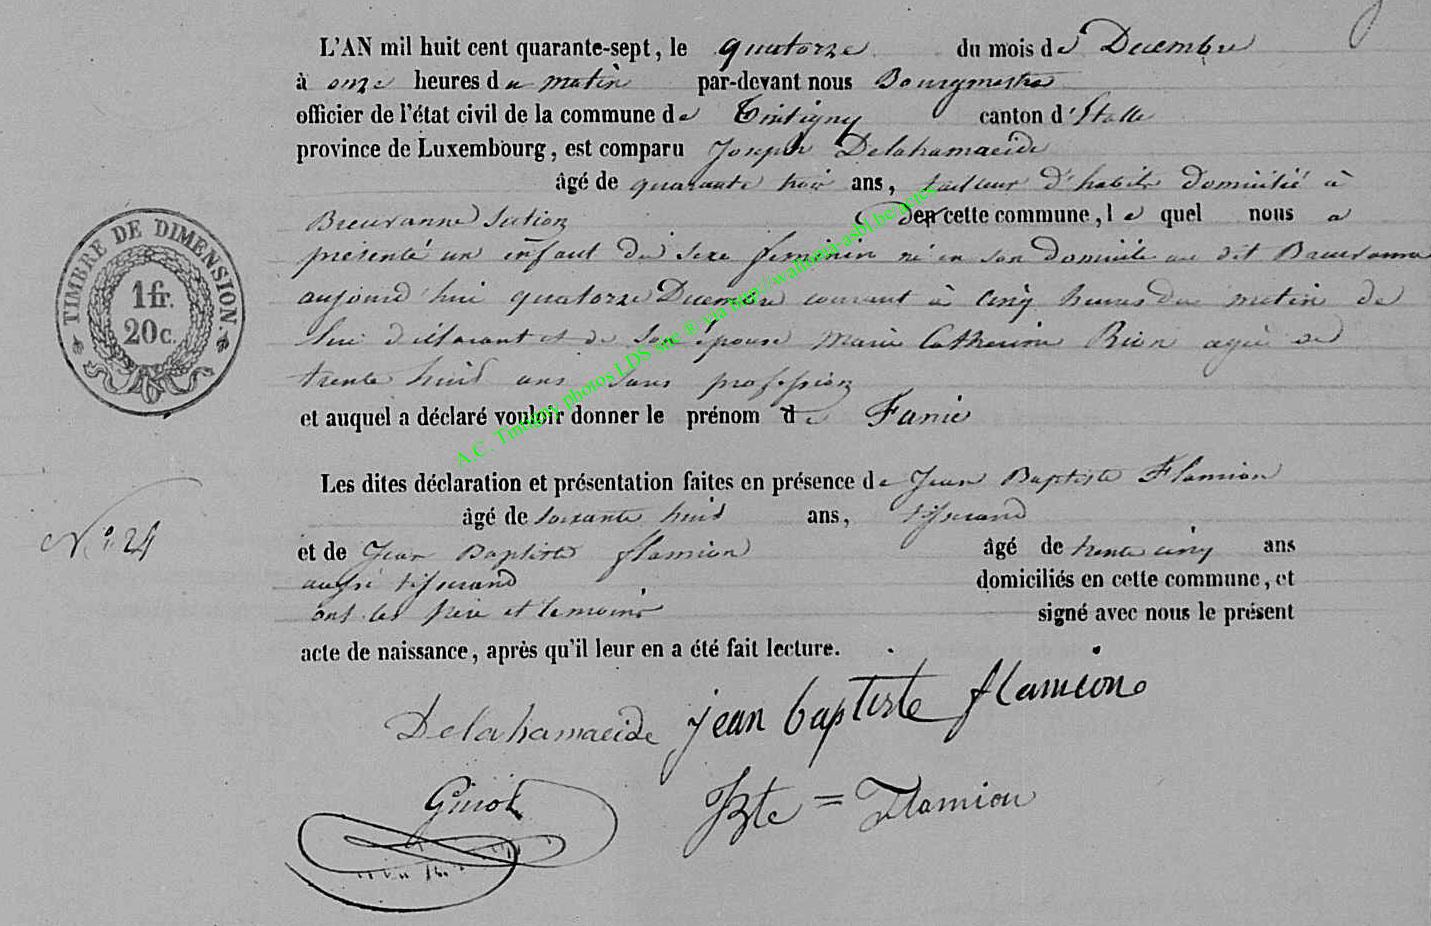 L'AN mil huit cent quarante-sept, le quatorze du mois de Decembre
à onze heures du matin par-devant nous Bourgmestre
officier de l'état civil de la commune de Tintigny canton d'Etalle
province de Luxembourg, est comparu Joseph Delahamaeide
âgé de quarante trois ans, tailleur d'habits domicilié à
Breuvanne Section Den cette commune, le quel nous a
présenté un enfant du sexe feminin né en son domicile au dit Breuvanne
aujourd'hui quatorze Decembre courant à cinq heures du matin de
lui déclarant et de son épouse Marie Catherine Rion agée de
trente huit ans sans profession
et auquel a déclaré vouloir donner le prénom de Fanie
Les dites déclaration et présentation faites en présence de Jean Baptiste Flamion
âgé de soixante huit ans, tisserand
et de Jean Baptiste flamion âgé de trente cinq ans
aussi tisserand domiciliés en cette commune, et
ont les père et temoins signé avec nous le présent
acte de naissance, après qu'il leur en a été fait lecture.
Delahamaeide jean baptiste flamion
Ginot JBte = Flamion
TIMBRE DE DIMENSION.
1fr.
20c.
N° 24
A.C. Tintigny photos LDS site ® via http://wallonia-asbl.be/actes